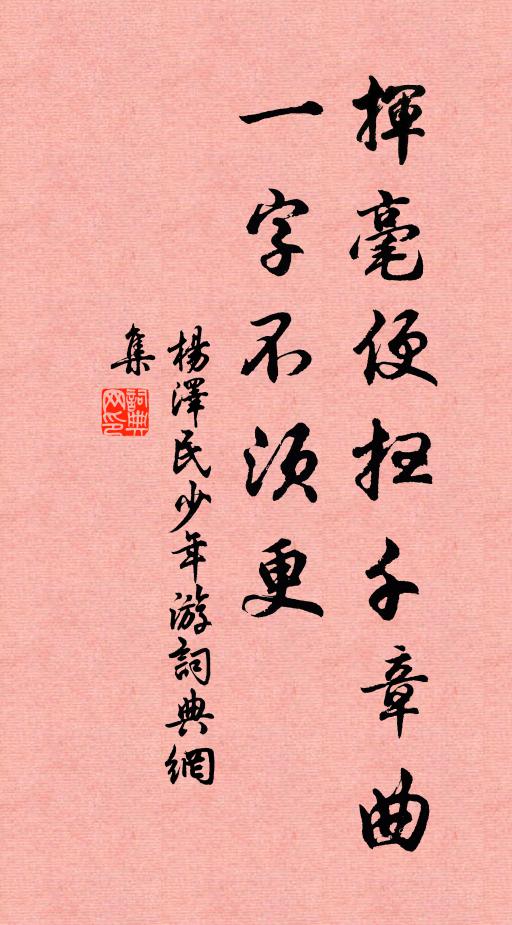 揮毫便掃千章曲
一字不須更
楊澤民少年游詞典網
集
詞典
网印